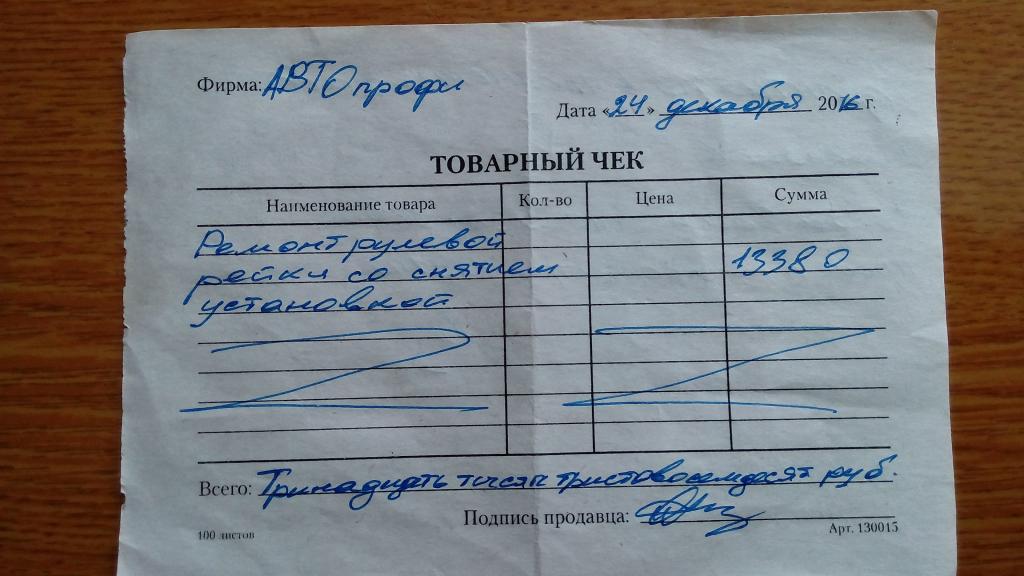 Фирма: АВТОпрофи
Дата «24» декабря 2016 г.
ТОВАРНЫЙ ЧЕК
Наименование товара Кол-во Цена Сумма
Ремонт рулевой
рейки со снятием 13380
установкой
Всего: Тринадцать тысяч тристовосемдесят руб.
Подпись продавца:
100 листов Арт. 130015